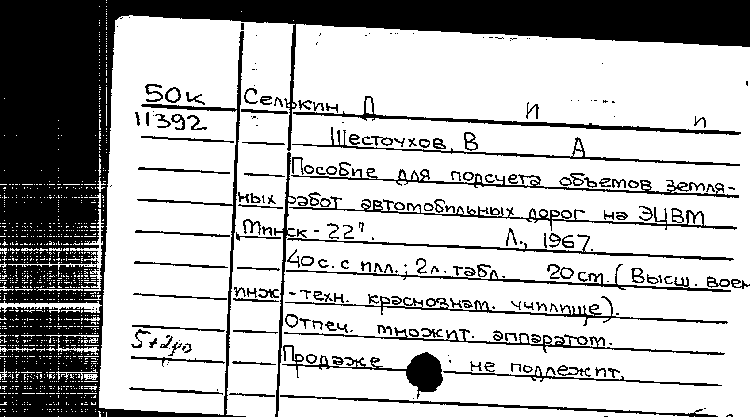 50к Селькин, Д И и
11392 Шесточхов, В А
Пособие для подсчета объемов земля-
ных работ автомобильных дорог на ЭЦВМ
"Минск-22". Л., 1967.
40с. с илл.; 2л. табл. 20 cm. (Высш. воен
инж-техн. краснознам. училище).
Отпеч. множит. аппаратом.
Продаже не подлежит.